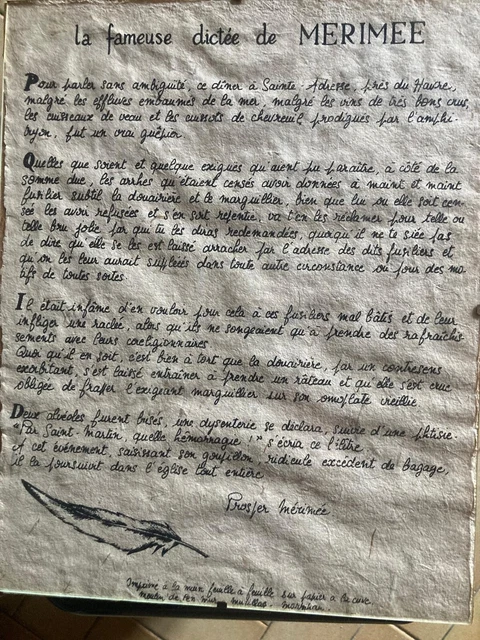 la fameuse dictée de MERIMEE
Pour parler sans ambiguïté, ce dîner à Sainte-Adresse, près du Havre,
malgré les effluves embaumés de la mer, malgré les vins de très bons crus,
les cuisseaux de veau et les cuissots de chevreuil prodigués par l'amphi-
tryon, fut un vrai guêpier.
Quelles que soient et quelque exiguës qu'aient pu paraître, à côté de la
somme due, les arrhes qu'étaient censés avoir données à maint et maint
fusilier subtil la douairière et le marguillier, bien que lui ou elle soit cen-
sée les avoir refusées et s'en soit repentie, va t'en les réclamer pour telle ou
telle bru jolie par qui tu les diras redemandées, quoiqu'il ne te siée pas
de dire qu'elle se les est laissé arracher par l'adresse des dits fusiliers et
qu'on les leur aurait suppléées dans toute autre circonstance ou pour des mo-
tifs de toutes sortes.
Il était infâme d'en vouloir pour cela à ces fusiliers mal bâtis et de leur
infliger une raclée, alors qu'ils ne songeaient qu'à prendre des rafraîchis-
sements avec leurs coreligionnaires
Quoi qu'il en soit, c'est bien à tort que la douairière, par un contresens
exorbitant, s'est laissé entraîner à prendre un râteau et qu'elle s'est crue
obligée de frapper l'exigeant marguillier sur son omoplate vieillie.
Deux alvéoles furent brisés, une dysenterie se déclara, suivie d'une phtisie.
"Par Saint-Martin, quelle hémorragie !" s'écria ce bélître.
A cet événement, saisissant son goupillon, ridicule excédent de bagage,
il la poursuivit dans l'église tout entière
Prosper Mérimée
Imprimé à la main feuille à feuille sur papier à la cuve.
moulin de Pen Mur muzillac morbihan